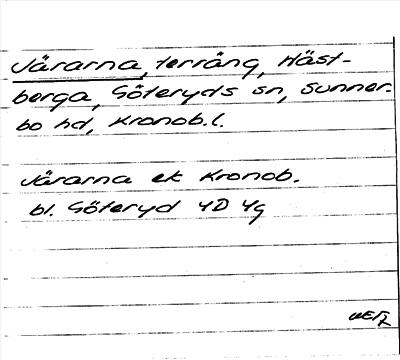 Järarna, terräng, Häst-
berga, Göteryds sn, Sunner-
bo hd, Kronob. l.
Järarna ek Kronob.
bl. Göteryd 4D 4g